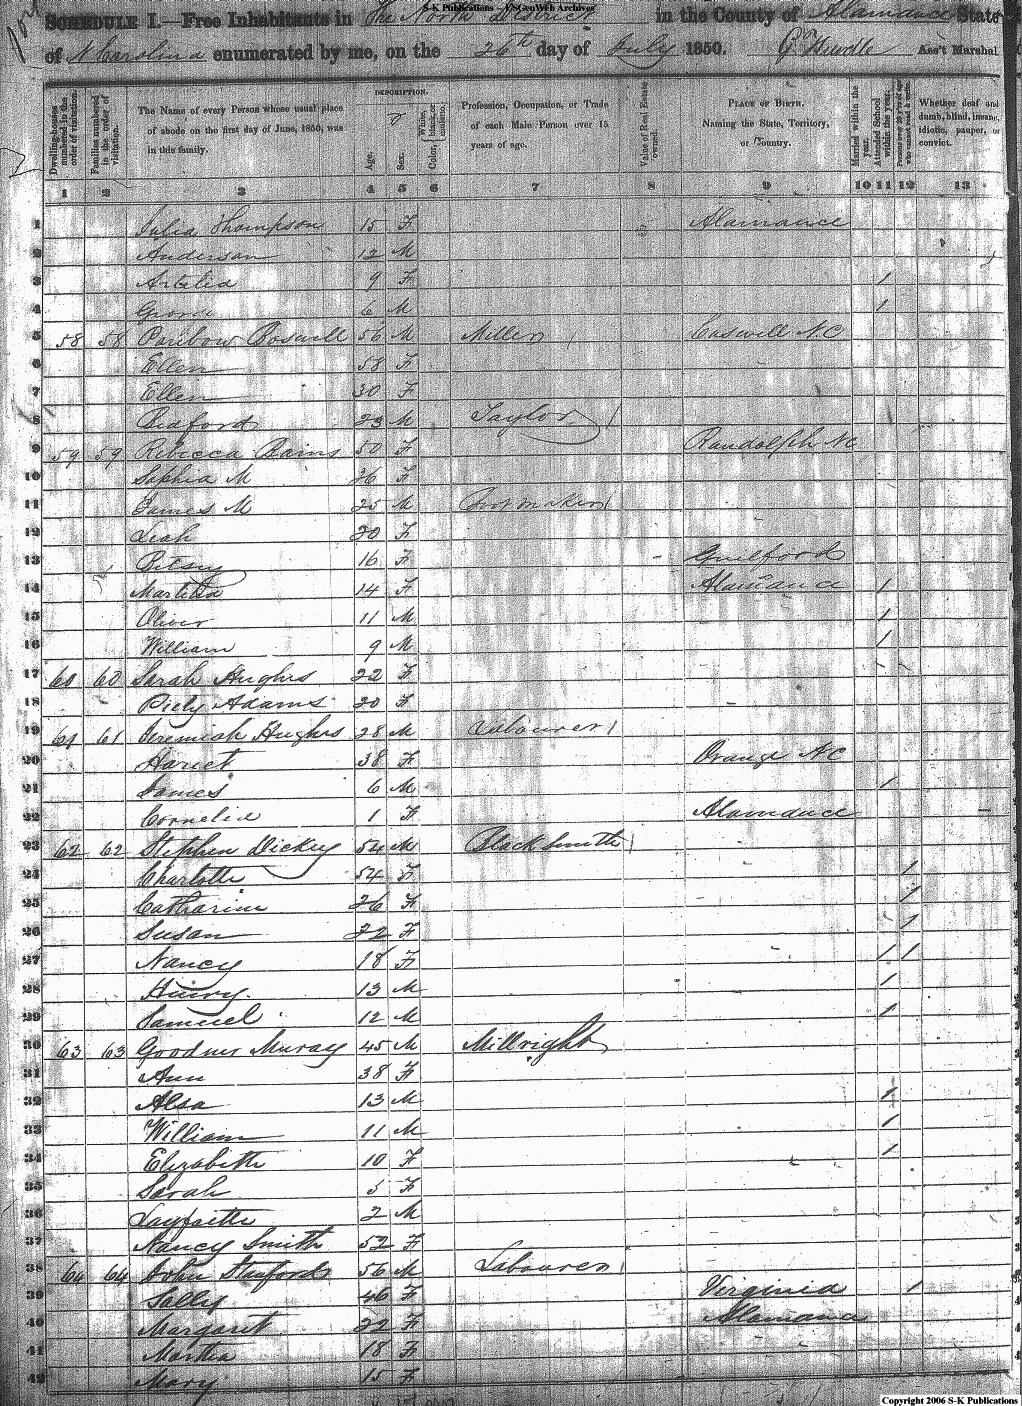 S-K Publications - USGenWeb Archives
SCHEDULE I.—Free Inhabitants in The North District in the County of Alamance State
of N Carolina enumerated by me, on the 26th day of July 1850. Ass't Marshal
Dwelling-houses numbered in the order of visitation.
Families numbered in the order of visitation.
The Name of every Person whose usual place of abode on the first day of June, 1850, was in this family.
DESCRIPTION.
Age.
Sex.
Color, White, black, or mulatto.
Profession, Occupation, or Trade of each Male Person over 15 years of age.
Value of Real Estate owned.
PLACE OF BIRTH. Naming the State, Territory, or Country.
Married within the year.
Attended School within the year.
Persons over 20 y'rs of age who cannot read & write.
Whether deaf and dumb, blind, insane, idiotic, pauper, or convict.
1 2 3 4 5 6 7 8 9 10 11 12 13
1 Julia Thompson 15 F Alamance
2 Anderson 12 M
3 Artelia 9 F 1
4 6 M 1
5 58 58 Boswell 56 M Miller Caswell NC
6 Ellen 58 F
7 Ellen 30 F
8 Bedford 23 M Taylor
9 59 59 Rebecca Rains 50 F Randolph NC
10 Sophia M 26 F
11 James M 25 M
12 Leah 20 F
13 Betsey 16 F Guilford
14 Martitia 14 F Alamance 1
15 Oliver 11 M 1
16 William 9 M 1
17 60 60 Sarah Hughs 22 F
18 Piety Adams 20 F
19 61 61 Jeremiah Hughs 28 M Labourer
20 Hariet 38 F Orange NC
21 James 6 M 1
22 Cornelia 1 F Alamance
23 62 62 Stephen Dickey 54 M Blacksmith
24 Charlotte 54 F 1
25 Catharine 26 F 1
26 Susan 22 F 1
27 Nancy 18 F 1 1
28 Henry 13 M 1
29 Samuel 12 M 1
30 63 63 Muray 45 M Millright
31 Ann 38 F
32 Alsa 13 M 1
33 William 11 M 1
34 Elizabeth 10 F 1
35 Sarah 5 F
36 Layfaette 2 M
37 Nancy Smith 52 F
38 64 64 John Stanford 56 M Labourer
39 Sally 46 F Virginia 1
40 Margaret 22 F Alamance
41 Martha 18 F
42 Mary 15 F
Copyright 2006 S-K Publications